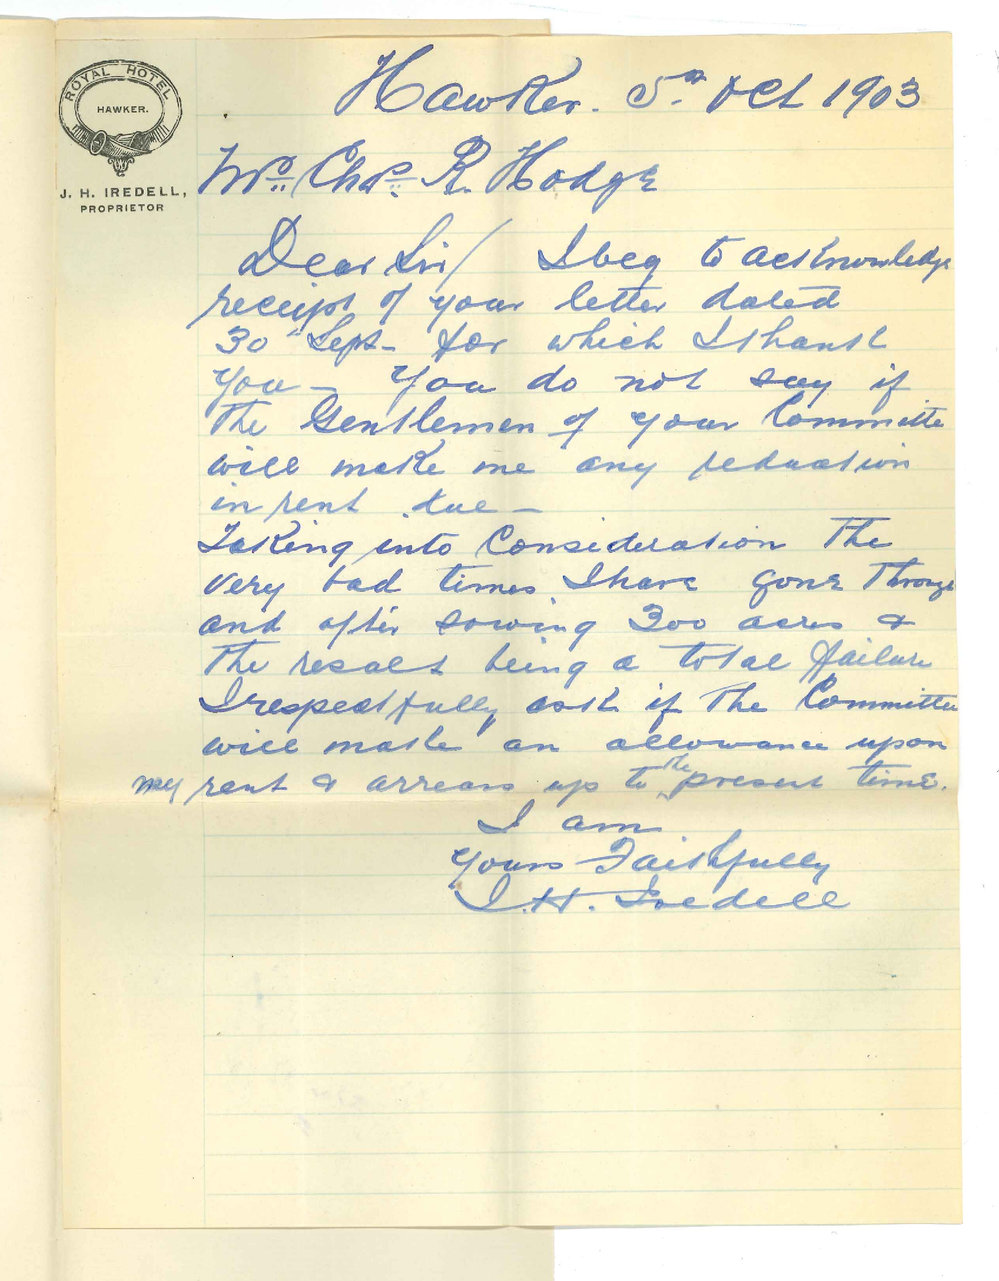 ROYAL HOTEL
HAWKER.
J. H. IREDELL,
PROPRIETOR
Hawker. 5th Oct 1903
Mr. Chas. R. Hodge
Dear Sir/ I beg to acknowledge
receipt of your letter dated
30th Sept - for which I thank
you - You do not say if
the Gentlemen of your Committe
will make me any reduction
in rent due -
Taking into Consideration the
very bad times I have gone through
and after sowing 300 acres &
the result being a total failure
I respectfully ask if the Committee
will make an allowance upon
my rent & arrears up to the present time.
I am
Yours Faithfully
J. H. Iredell